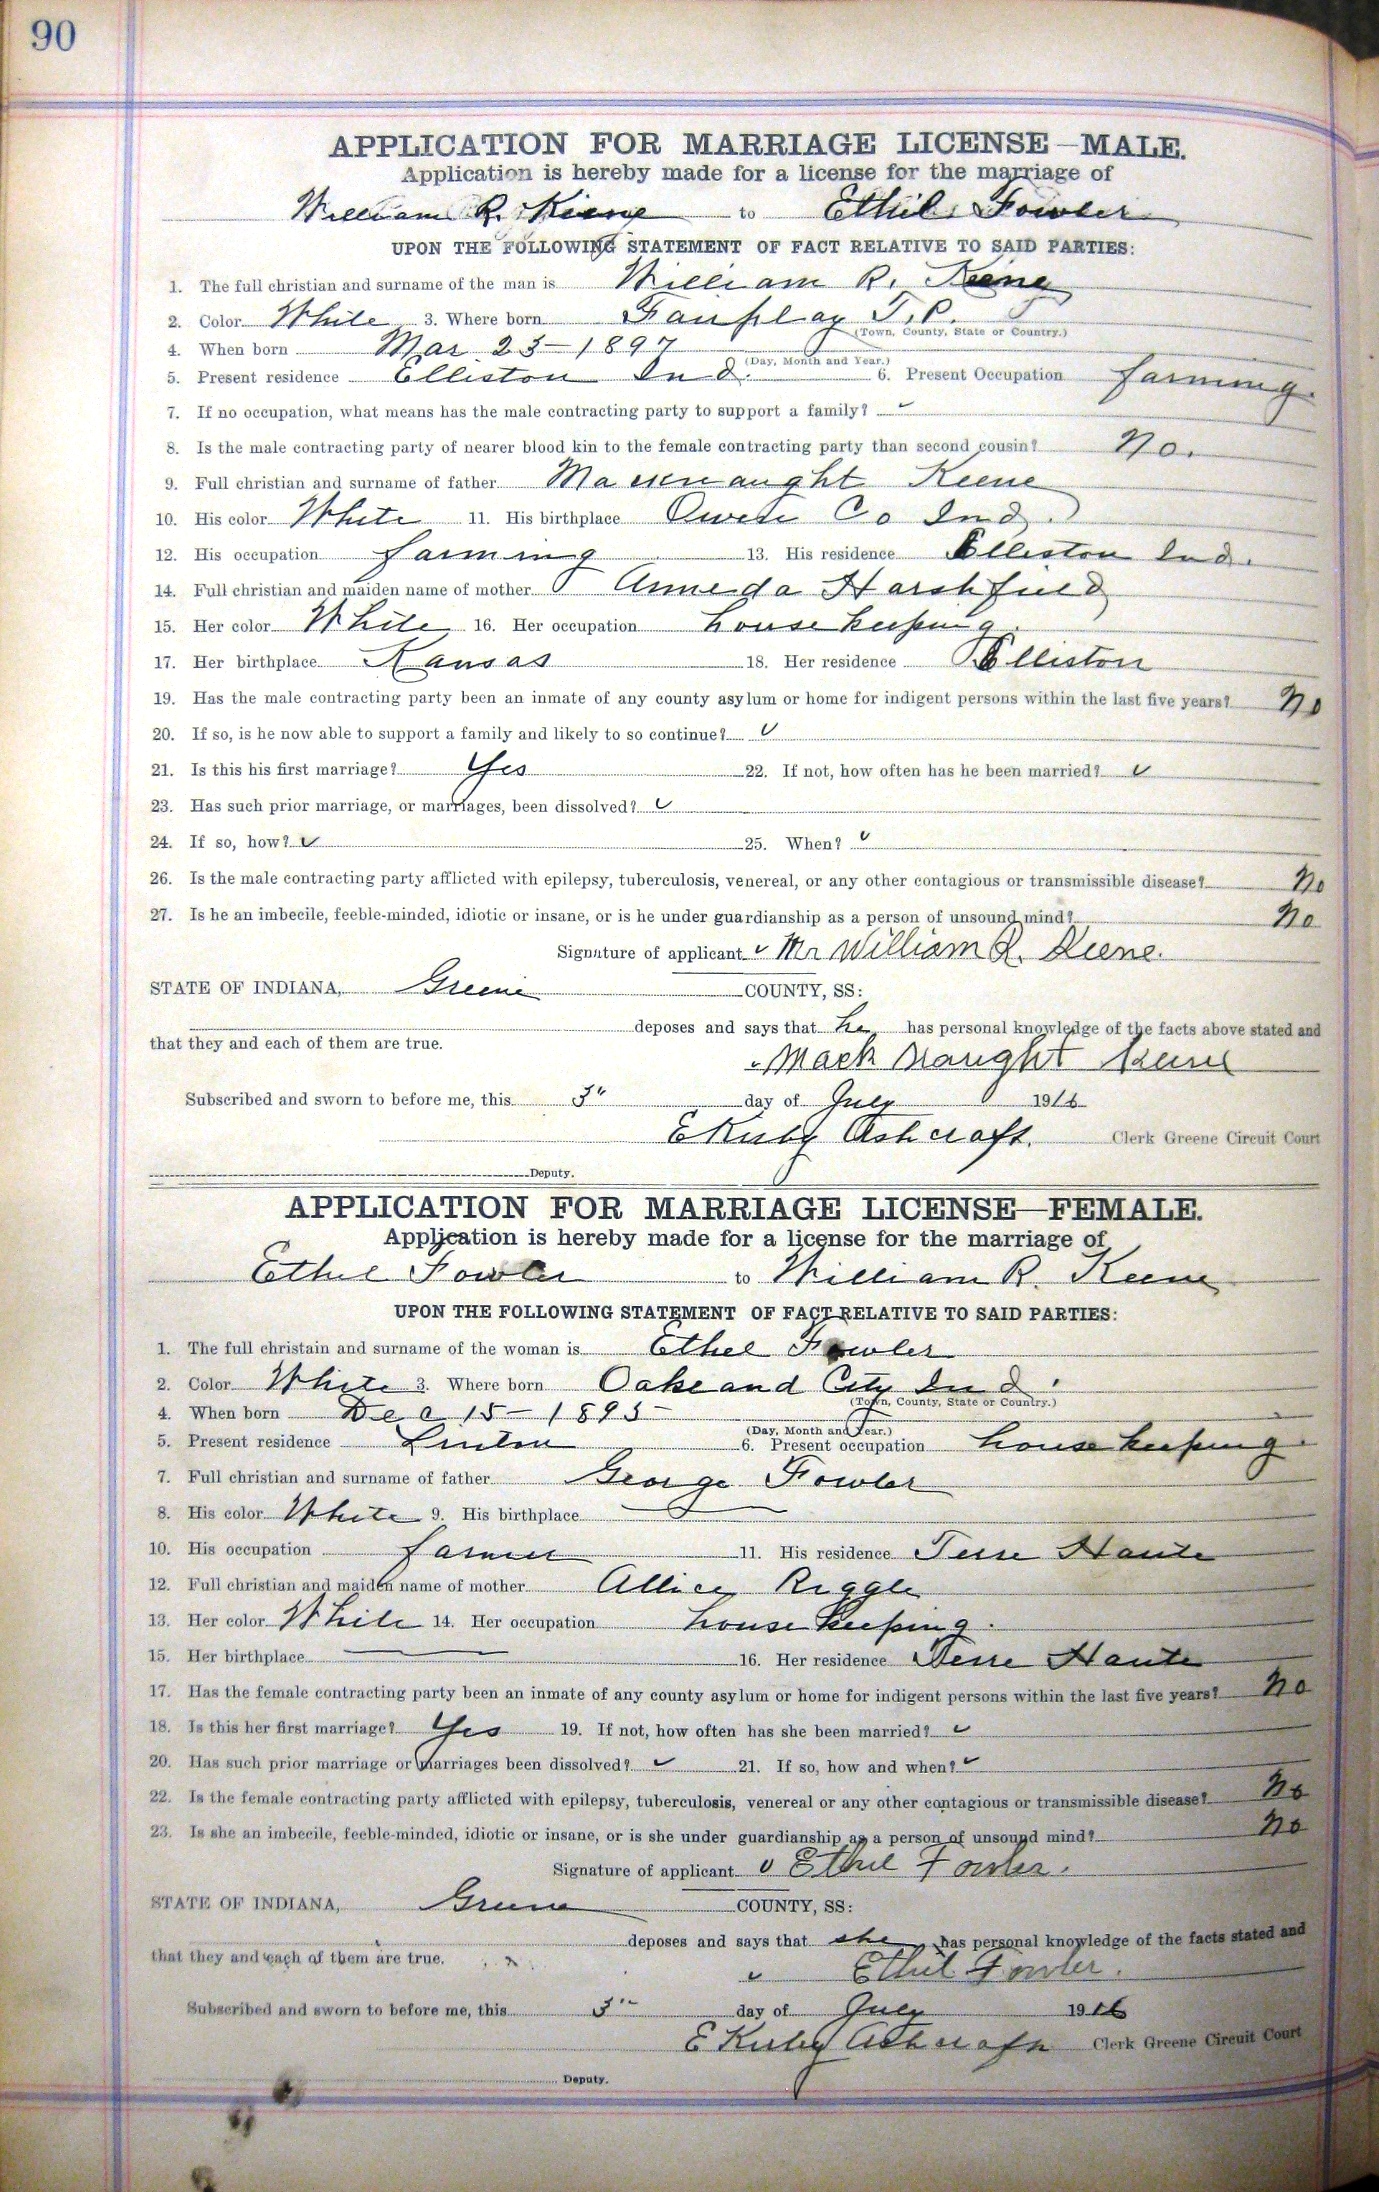 90
APPLICATION FOR MARRIAGE LICENSE—MALE.
Application is hereby made for a license for the marriage of
William R. Keene to Ethel Fowler
UPON THE FOLLOWING STATEMENT OF FACT RELATIVE TO SAID PARTIES:
1. The full christian and surname of the man is William R. Keene
2. Color White 3. Where born Fairplay T.P.
(Town, County, State or Country.)
4. When born Mar 23—1897
(Day, Month and Year.)
5. Present residence Elliston Ind. 6. Present Occupation farming.
7. If no occupation, what means has the male contracting party to support a family?
8. Is the male contracting party of nearer blood kin to the female contracting party than second cousin? No.
9. Full christian and surname of father Keene
10. His color White 11. His birthplace Owen Co Ind.
12. His occupation farming 13. His residence Elliston Ind.
14. Full christian and maiden name of mother Harshfield
15. Her color White 16. Her occupation house keeping.
17. Her birthplace Kansas 18. Her residence Elliston
19. Has the male contracting party been an inmate of any county asylum or home for indigent persons within the last five years? No
20. If so, is he now able to support a family and likely to so continue?
21. Is this his first marriage? Yes 22. If not, how often has he been married?
23. Has such prior marriage, or marriages, been dissolved?
24. If so, how? 25. When?
26. Is the male contracting party afflicted with epilepsy, tuberculosis, venereal, or any other contagious or transmissible disease? No
27. Is he an imbecile, feeble-minded, idiotic or insane, or is he under guardianship as a person of unsound mind? No
Signature of applicant Mr William R. Keene.
STATE OF INDIANA, Greene COUNTY, SS:
deposes and says that he has personal knowledge of the facts above stated and
that they and each of them are true.
Mack Naught Keene
Subscribed and sworn to before me, this 3" day of July 1916
E Kirby Ashcraft. Clerk Greene Circuit Court
Deputy.
APPLICATION FOR MARRIAGE LICENSE—FEMALE.
Application is hereby made for a license for the marriage of
Ethel Fowler to William R. Keene
UPON THE FOLLOWING STATEMENT OF FACT RELATIVE TO SAID PARTIES:
1. The full christain and surname of the woman is Ethel Fowler
2. Color White 3. Where born Oakland City Ind.
(Town, County, State or Country.)
4. When born Dec 15—1895
(Day, Month and Year.)
5. Present residence Linton 6. Present occupation house keeping.
7. Full christian and surname of father George Fowler
8. His color White 9. His birthplace —
10. His occupation farmer 11. His residence Terre Haute
12. Full christian and maiden name of mother Allice Riggle
13. Her color White 14. Her occupation house keeping.
15. Her birthplace — 16. Her residence Terre Haute
17. Has the female contracting party been an inmate of any county asylum or home for indigent persons within the last five years? No
18. Is this her first marriage? Yes 19. If not, how often has she been married?
20. Has such prior marriage or marriages been dissolved? 21. If so, how and when?
22. Is the female contracting party afflicted with epilepsy, tuberculosis, venereal or any other contagious or transmissible disease? No
23. Is she an imbecile, feeble-minded, idiotic or insane, or is she under guardianship as a person of unsound mind? No
Signature of applicant Ethel Fowler.
STATE OF INDIANA, Greene COUNTY, SS:
deposes and says that she has personal knowledge of the facts stated and
that they and each of them are true.
Ethel Fowler.
Subscribed and sworn to before me, this 3" day of July 1916
E Kirby Ashcraft Clerk Greene Circuit Court
Deputy.